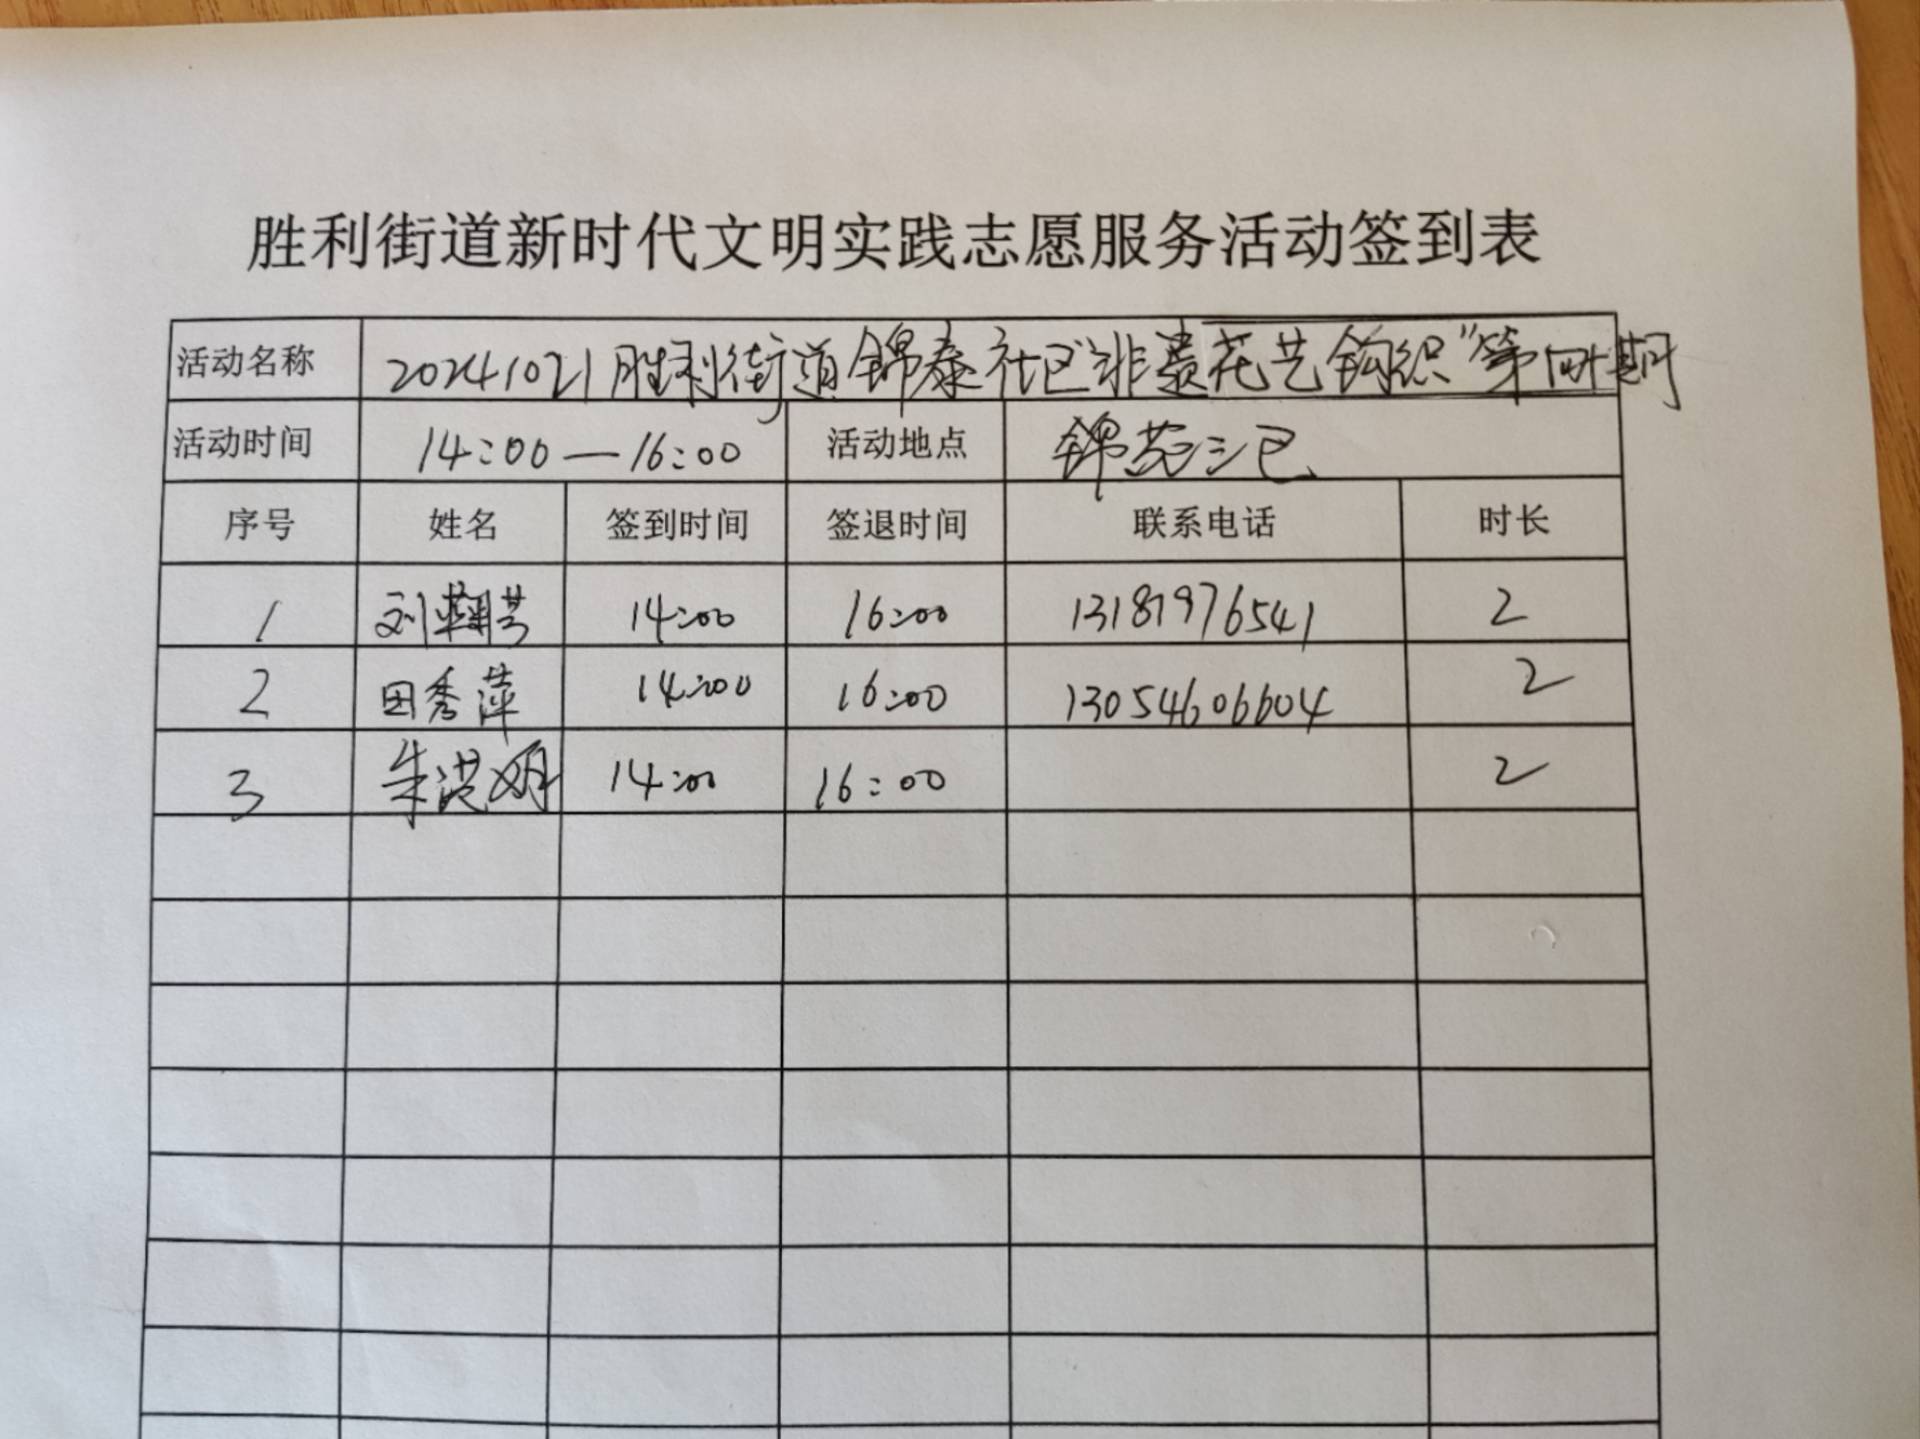 胜利街道新时代文明实践志愿服务活动签到表
活动名称 20241021胜利街道锦泰社区"非遗花艺钩织"第四期
活动时间 14:00—16:00 活动地点 锦苑三区
序号 姓名 签到时间 签退时间 联系电话 时长
1 刘翠芳 14:00 16:00 13181976541 2
2 田秀萍 14:00 16:00 13054606604 2
3 朱洪明 14:00 16:00 2